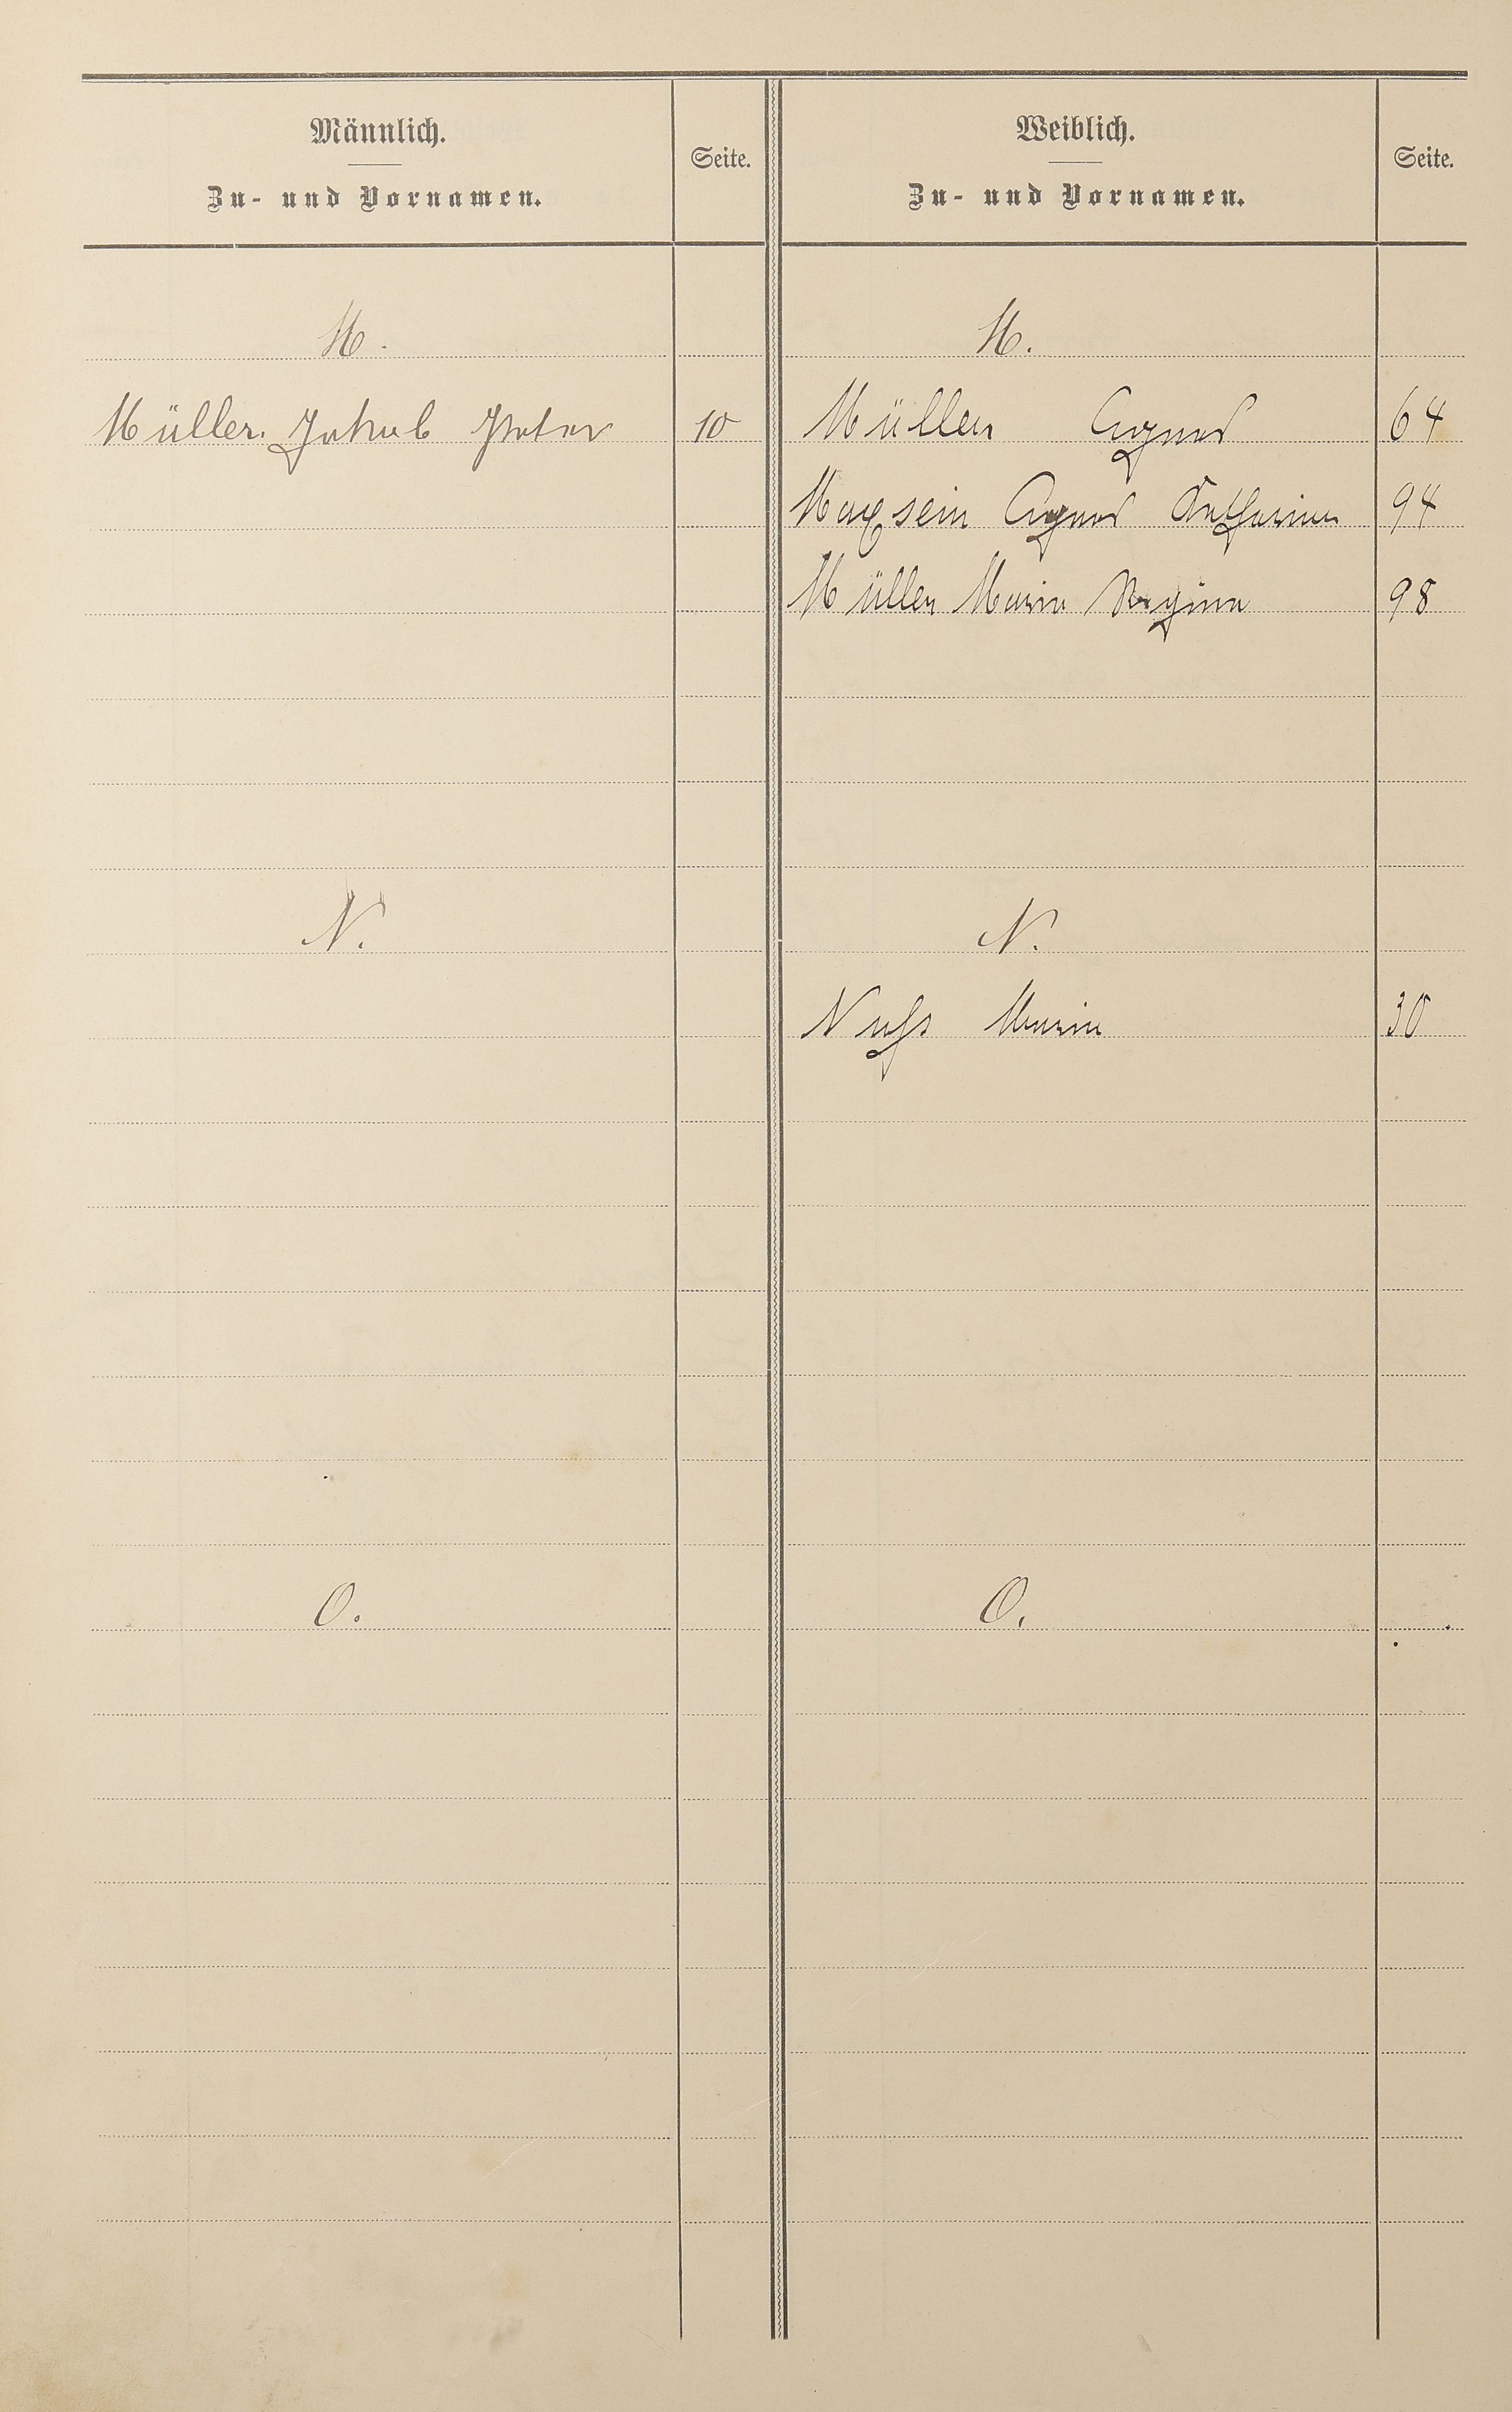 Männlich.
Zu- und Vornamen.
Seite.
Weiblich.
Zu- und Vornamen.
Seite.
M.
M.
Müller Jakob Peter 10
Müller Agnes 64
Maxsein Agnes Katharina 94
Müller Maria Regina 98
N.
N.
Nuss Maria 30
O.
O.